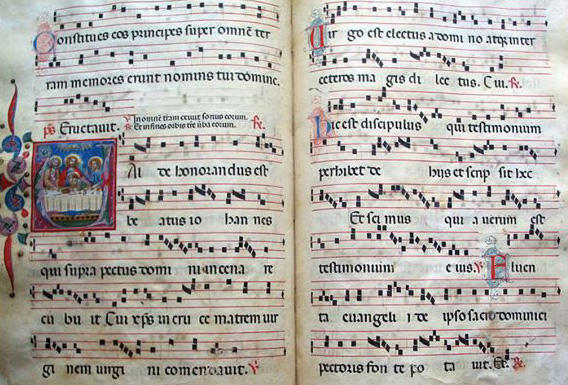 Constitues eos principes super omnē ter
ram memores erunt nominis tui domine.
p̄s Eructauit. ℣ In omnē terram exiuit sonus eorum.
Et in fines orbis tr̄e ūba eorum. ℟.
Ual de honorandus est
be atus io han nes
qui supra pectus domi ni in cena re
cu bu it Cui xp̄s in cru ce matrem uir
gi nem uirgi ni comendauit. ℣
Uir go est electus a domi no atq; inter
ceteros ma gis di lec tus. Cui. ℟.
hic est discipulus qui testimonium
perhibet de hijs et scrip sit hec
Et sci mus qui a uerum est
testimonium e ius. ℣ Fluen
ta euangeli i de ipso sacro dominici
pectoris fon te po ta uit. Et. ℟.